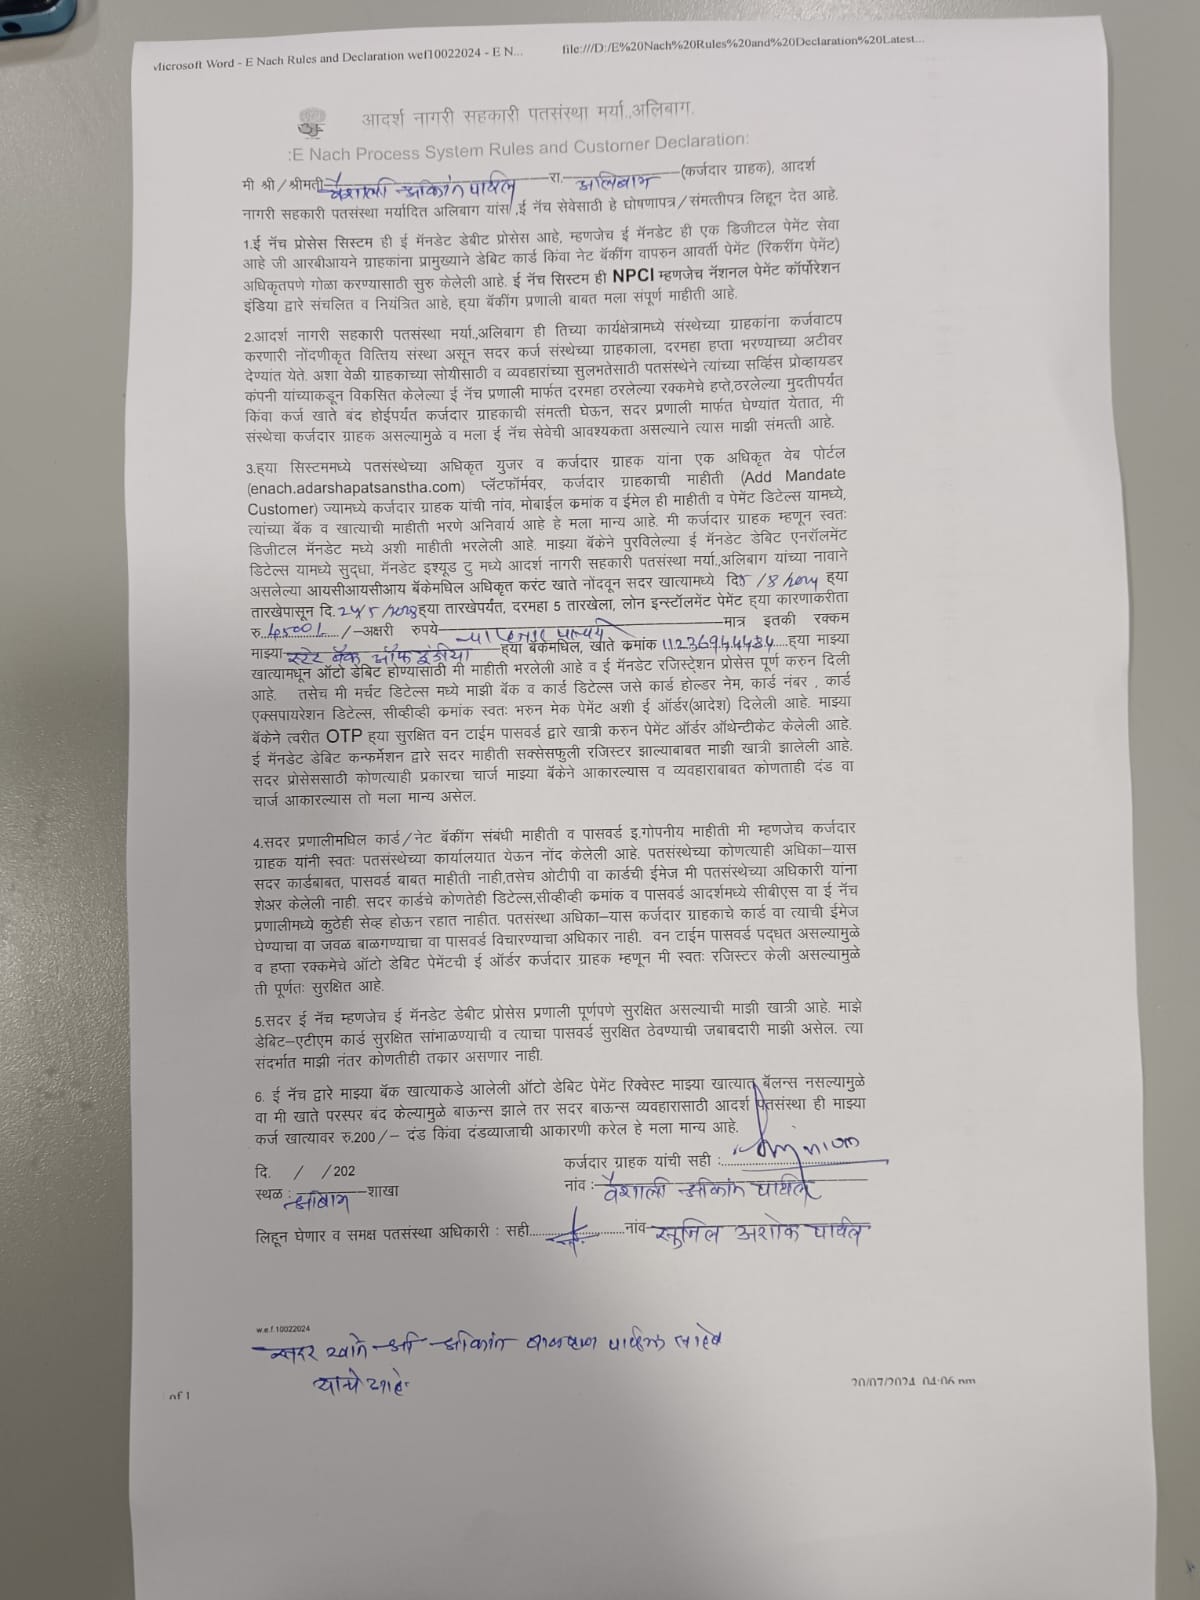 Microsoft Word - E Nach Rules and Declaration wef10022024 - E N... file:///D:/E%20Nach%20Rules%20and%20Declaration%20Latest...
आदर्श नागरी सहकारी पतसंस्था मर्या.,अलिबाग.
:E Nach Process System Rules and Customer Declaration:
मी श्री/श्रीमती वैशाली श्रीकांत पाटील रा. अलिबाग (कर्जदार ग्राहक), आदर्श
नागरी सहकारी पतसंस्था मर्यादित अलिबाग यांस ,ई नॅच सेवेसाठी हे घोषणापत्र/संमत्तीपत्र लिहून देत आहे.
1.ई नॅच प्रोसेस सिस्टम ही ई मॅनडेट डेबीट प्रोसेस आहे, म्हणजेच ई मॅनडेट ही एक डिजीटल पेमेंट सेवा
आहे जी आरबीआयने ग्राहकांना प्रामुख्याने डेबिट कार्ड किंवा नेट बॅकींग वापरुन आवर्ती पेमेंट (रिकरींग पेमेंट)
अधिकृतपणे गोळा करण्यासाठी सुरु केलेली आहे. ई नॅच सिस्टम ही NPCI म्हणजेच नॅशनल पेमेंट कॉर्पोरेशन
इंडिया द्वारे संचलित व नियंत्रित आहे, ह्या बॅकींग प्रणाली बाबत मला संपूर्ण माहीती आहे.
2.आदर्श नागरी सहकारी पतसंस्था मर्या.,अलिबाग ही तिच्या कार्यक्षेत्रामध्ये संस्थेच्या ग्राहकांना कर्जवाटप
करणारी नोंदणीकृत वित्तिय संस्था असून सदर कर्ज संस्थेच्या ग्राहकाला, दरमहा हप्ता भरण्याच्या अटीवर
देण्यांत येते. अशा वेळी ग्राहकाच्या सोयीसाठी व व्यवहारांच्या सुलभतेसाठी पतसंस्थेने त्यांच्या सर्व्हिस प्रोव्हायडर
कंपनी यांच्याकडून विकसित केलेल्या ई नॅच प्रणाली मार्फत दरमहा ठरलेल्या रक्कमेचे हप्ते,ठरलेल्या मुदतीपर्यत
किंवा कर्ज खाते बंद होईपर्यत कर्जदार ग्राहकाची संमत्ती घेऊन, सदर प्रणाली मार्फत घेण्यांत येतात, मी
संस्थेचा कर्जदार ग्राहक असल्यामुळे व मला ई नॅच सेवेची आवश्यकता असल्याने त्यास माझी संमत्ती आहे.
3.ह्या सिस्टममध्ये पतसंस्थेच्या अधिकृत युजर व कर्जदार ग्राहक यांना एक अधिकृत वेब पोर्टल
(enach.adarshapatsanstha.com) प्लॅटफॉर्मवर, कर्जदार ग्राहकाची माहीती (Add Mandate
Customer) ज्यामध्ये कर्जदार ग्राहक यांची नांव, मोबाईल क्रमांक व ईमेल ही माहीती व पेमेंट डिटेल्स यामध्ये,
त्यांच्या बॅक व खात्याची माहीती भरणे अनिवार्य आहे हे मला मान्य आहे. मी कर्जदार ग्राहक म्हणून स्वतः
डिजीटल मॅनडेट मध्ये अशी माहीती भरलेली आहे. माझ्या बॅकेने पुरविलेल्या ई मॅनडेट डेबिट एनरॉलमेंट
डिटेल्स यामध्ये सुद्धा, मॅनडेट इश्यूड टु मध्ये आदर्श नागरी सहकारी पतसंस्था मर्या.,अलिबाग यांच्या नावाने
असलेल्या आयसीआयसीआय बॅकेमधिल अधिकृत करंट खाते नोंदवून सदर खात्यामध्ये दि 5/8/2024 ह्या
तारखेपासून दि. 25/5/2028 ह्या तारखेपर्यंत, दरमहा 5 तारखेला, लोन इन्स्टॉलमेंट पेमेंट ह्या कारणाकरीता
रु. /-अक्षरी रुपये मात्र इतकी रक्कम
माझ्या स्टेट बँक ऑफ इंडिया ह्या बॅकेमधिल, खाते क्रमांक 11236944484 ह्या माझ्या
खात्यामधून ऑटो डेबिट होण्यासाठी मी माहीती भरलेली आहे व ई मॅनडेट रजिस्टे्शन प्रोसेस पूर्ण करुन दिली
आहे. तसेच मी मर्चट डिटेल्स मध्ये माझी बॅक व कार्ड डिटेल्स जसे कार्ड होल्डर नेम, कार्ड नंबर , कार्ड
एक्सपायरेशन डिटेल्स, सीव्हीव्ही क्रमांक स्वतः भरुन मेक पेमेंट अशी ई ऑर्डर(आदेश) दिलेली आहे. माझ्या
बॅकेने त्वरीत OTP ह्या सुरक्षित वन टाईम पासवर्ड द्वारे खात्री करुन पेमेंट ऑर्डर ऑथेन्टीकेट केलेली आहे.
ई मॅनडेट डेबिट कन्फर्मेशन द्वारे सदर माहीती सक्सेसफुली रजिस्टर झाल्याबाबत माझी खात्री झालेली आहे.
सदर प्रोसेससाठी कोणत्याही प्रकारचा चार्ज माझ्या बॅकेने आकारल्यास व व्यवहाराबाबत कोणताही दंड वा
चार्ज आकारल्यास तो मला मान्य असेल.
4.सदर प्रणालीमधिल कार्ड/नेट बॅकींग संबंधी माहीती व पासवर्ड इ.गोपनीय माहीती मी म्हणजेच कर्जदार
ग्राहक यांनी स्वतः पतसंस्थेच्या कार्यालयात येऊन नोंद केलेली आहे. पतसंस्थेच्या कोणत्याही अधिका-यास
सदर कार्डबाबत, पासवर्ड बाबत माहीती नाही,तसेच ओटीपी वा कार्डची ईमेज मी पतसंस्थेच्या अधिकारी यांना
शेअर केलेली नाही. सदर कार्डचे कोणतेही डिटेल्स,सीव्हीव्ही क्रमांक व पासवर्ड आदर्शमध्ये सीबीएस वा ई नॅच
प्रणालीमध्ये कुठेही सेव्ह होऊन रहात नाहीत. पतसंस्था अधिका-यास कर्जदार ग्राहकाचे कार्ड वा त्याची ईमेज
घेण्याचा वा जवळ बाळगण्याचा वा पासवर्ड विचारण्याचा अधिकार नाही. वन टाईम पासवर्ड पद्धत असल्यामुळे
व हप्ता रक्कमेचे ऑटो डेबिट पेमेंटची ई ऑर्डर कर्जदार ग्राहक म्हणून मी स्वतः रजिस्टर केली असल्यामुळे
ती पूर्णतः सुरक्षित आहे.
5.सदर ई नॅच म्हणजेच ई मॅनडेट डेबीट प्रोसेस प्रणाली पूर्णपणे सुरक्षित असल्याची माझी खात्री आहे. माझे
डेबिट-एटीएम कार्ड सुरक्षित सांभाळण्याची व त्याचा पासवर्ड सुरक्षित ठेवण्याची जबाबदारी माझी असेल. त्या
संदर्भात माझी नंतर कोणतीही तकार असणार नाही.
6. ई नॅच द्वारे माझ्या बॅक खात्याकडे आलेली ऑटो डेबिट पेमेंट रिक्वेस्ट माझ्या खात्यात बॅलन्स नसल्यामुळे
वा मी खाते परस्पर बंद केल्यामुळे बाऊन्स झाले तर सदर बाऊन्स व्यवहारासाठी आदर्श पतसंस्था ही माझ्या
कर्ज खात्यावर रु.200/- दंड किंवा दंडव्याजाची आकारणी करेल हे मला मान्य आहे.
दि. / /202 कर्जदार ग्राहक यांची सही :
स्थळ : अलिबाग शाखा नांव :- वैशाली श्रीकांत पाटील
लिहून घेणार व समक्ष पतसंस्था अधिकारी : सही नांव सुनिल अशोक पाटील
w.e.f.10022024
सदर खाते श्री श्रीकांत बाळकृष्ण पाटील साहेब
यांचे आहे.
of 1 20/07/2024, 04:06 pm